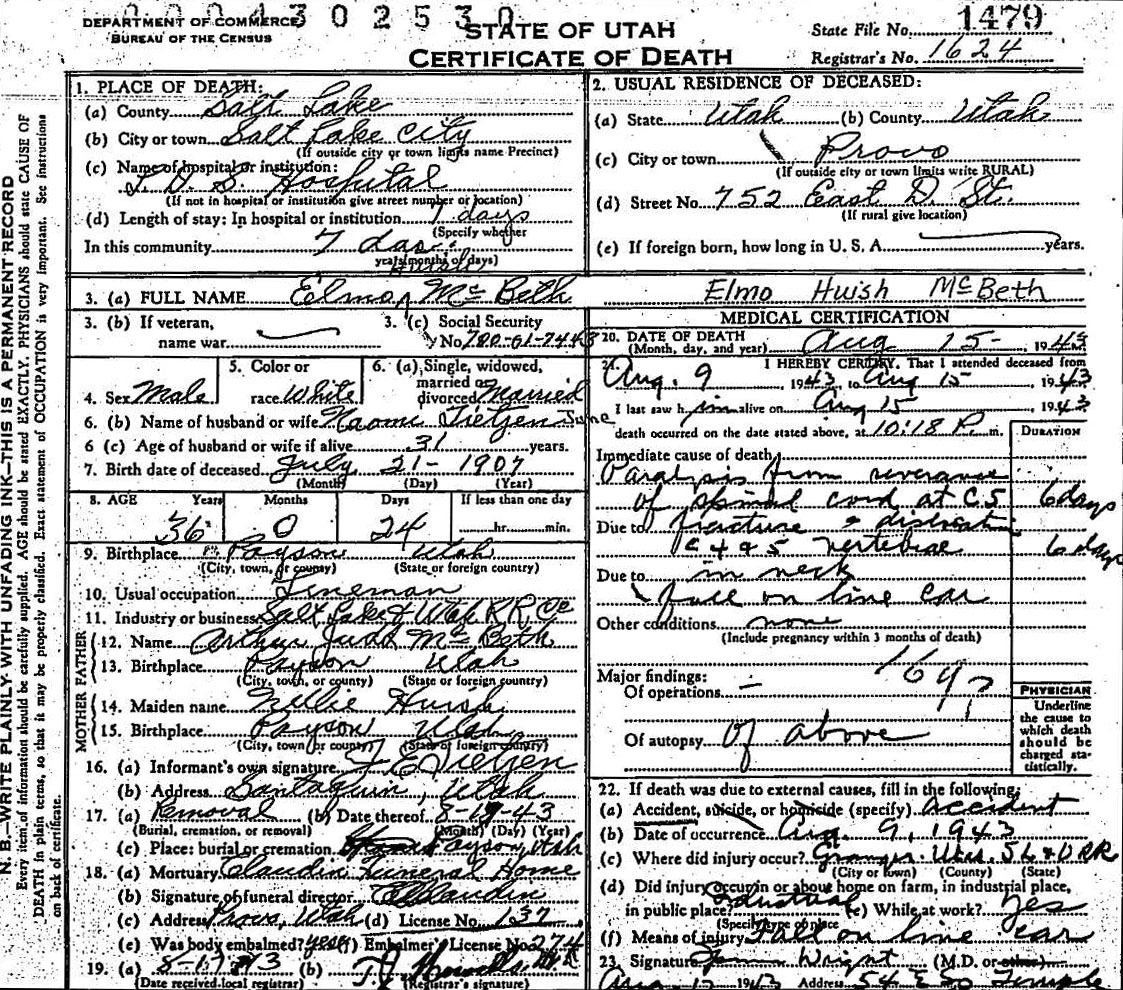 000430253 0
DEPARTMENT OF COMMERCE
BUREAU OF THE CENSUS
STATE OF UTAH
CERTIFICATE OF DEATH
State File No. 1479
Registrar's No. 1624
N. B.—WRITE PLAINLY WITH UNFADING INK—THIS IS A PERMANENT RECORD
Every item of information should be carefully supplied. AGE should be stated EXACTLY. PHYSICIANS should state CAUSE OF
DEATH in plain terms, so that it may be properly classified. Exact statement of OCCUPATION is very important. See instructions
on back of certificate.
1. PLACE OF DEATH:
(a) County Salt Lake
(b) City or town Salt Lake City
(If outside city or town limits name Precinct)
(c) Name of hospital or institution:
L. D. S. Hospital
(If not in hospital or institution give street number or location)
(d) Length of stay: In hospital or institution 7 days
(Specify whether
In this community 7 days
years, months or days)
2. USUAL RESIDENCE OF DECEASED:
(a) State Utah (b) County Utah
(c) City or town Provo
(If outside city or town limits write RURAL)
(d) Street No 752 East D. St.
(If rural give location)
(e) If foreign born, how long in U. S. A. years.
Huish
3. (a) FULL NAME Elmo McBeth Elmo Huish McBeth
3. (b) If veteran,
name war
3. (c) Social Security
No. 700-01-7443
4. Sex Male
5. Color or
race White
6. (a) Single, widowed,
married or
divorced Married
6. (b) Name of husband or wife Naomi Tietjen June
6 (c) Age of husband or wife if alive 31 years.
7. Birth date of deceased July 21- 1907
(Month) (Day) (Year)
8. AGE Years Months Days If less than one day
36 0 24 hr. min.
9. Birthplace Payson Utah
(City, town, or county) (State or foreign country)
10. Usual occupation Lineman
11. Industry or business Salt Lake & Utah R R Co
FATHER
12. Name Arthur Judd McBeth
13. Birthplace Payson Utah
(City, town, or county) (State or foreign country)
MOTHER
14. Maiden name Nellie Huish
15. Birthplace Payson Utah
(City, town or county) (State or foreign country)
16. (a) Informant's own signature F E Tietjen
(b) Address Santaquin, Utah
17. (a) Removal (b) Date thereof 8-19-43
(Burial, cremation, or removal) (Month) (Day) (Year)
(c) Place: burial or cremation Payson, Utah
18. (a) Mortuary Claudin Funeral Home
(b) Signature of funeral director Claudin
(c) Address Provo, Utah (d) License No. 132
(e) Was body embalmed? yes (f) Embalmer's License No. 274
19. (a) 8-17-43 (b)
(Date received local registrar) (Registrar's signature)
MEDICAL CERTIFICATION
20. DATE OF DEATH
(Month, day, and year) Aug 15- 1943
21. I HEREBY CERTIFY, That I attended deceased from
Aug. 9 1943, to Aug 15 1943
I last saw him alive on Aug 15 1943
death occurred on the date stated above, at 10:18 P. m.
DURATION
Immediate cause of death
Paralysis from severance
of spinal cord at C5 6 days
Due to fracture & dislocation
C 4 & 5 vertebrae 6 days
Due to in neck
fall on line car
Other conditions none
(Include pregnancy within 3 months of death)
169
Major findings:
Of operations —
Of autopsy of above
PHYSICIAN
Underline
the cause to
which death
should be
charged sta-
tistically.
22. If death was due to external causes, fill in the following:
(a) Accident, suicide, or homicide (specify) Accident
(b) Date of occurrence Aug. 9, 1943
(c) Where did injury occur? Granger. Utah. SL&U RR
(City or town) (County) (State)
(d) Did injury occur in or about home on farm, in industrial place,
in public place? Industrial (e) While at work? Yes
(Specify type of place
(f) Means of injury Fall on line car
23. Signature Wright (M.D. or other)
Aug 17 1943 Address 54 E So Temple